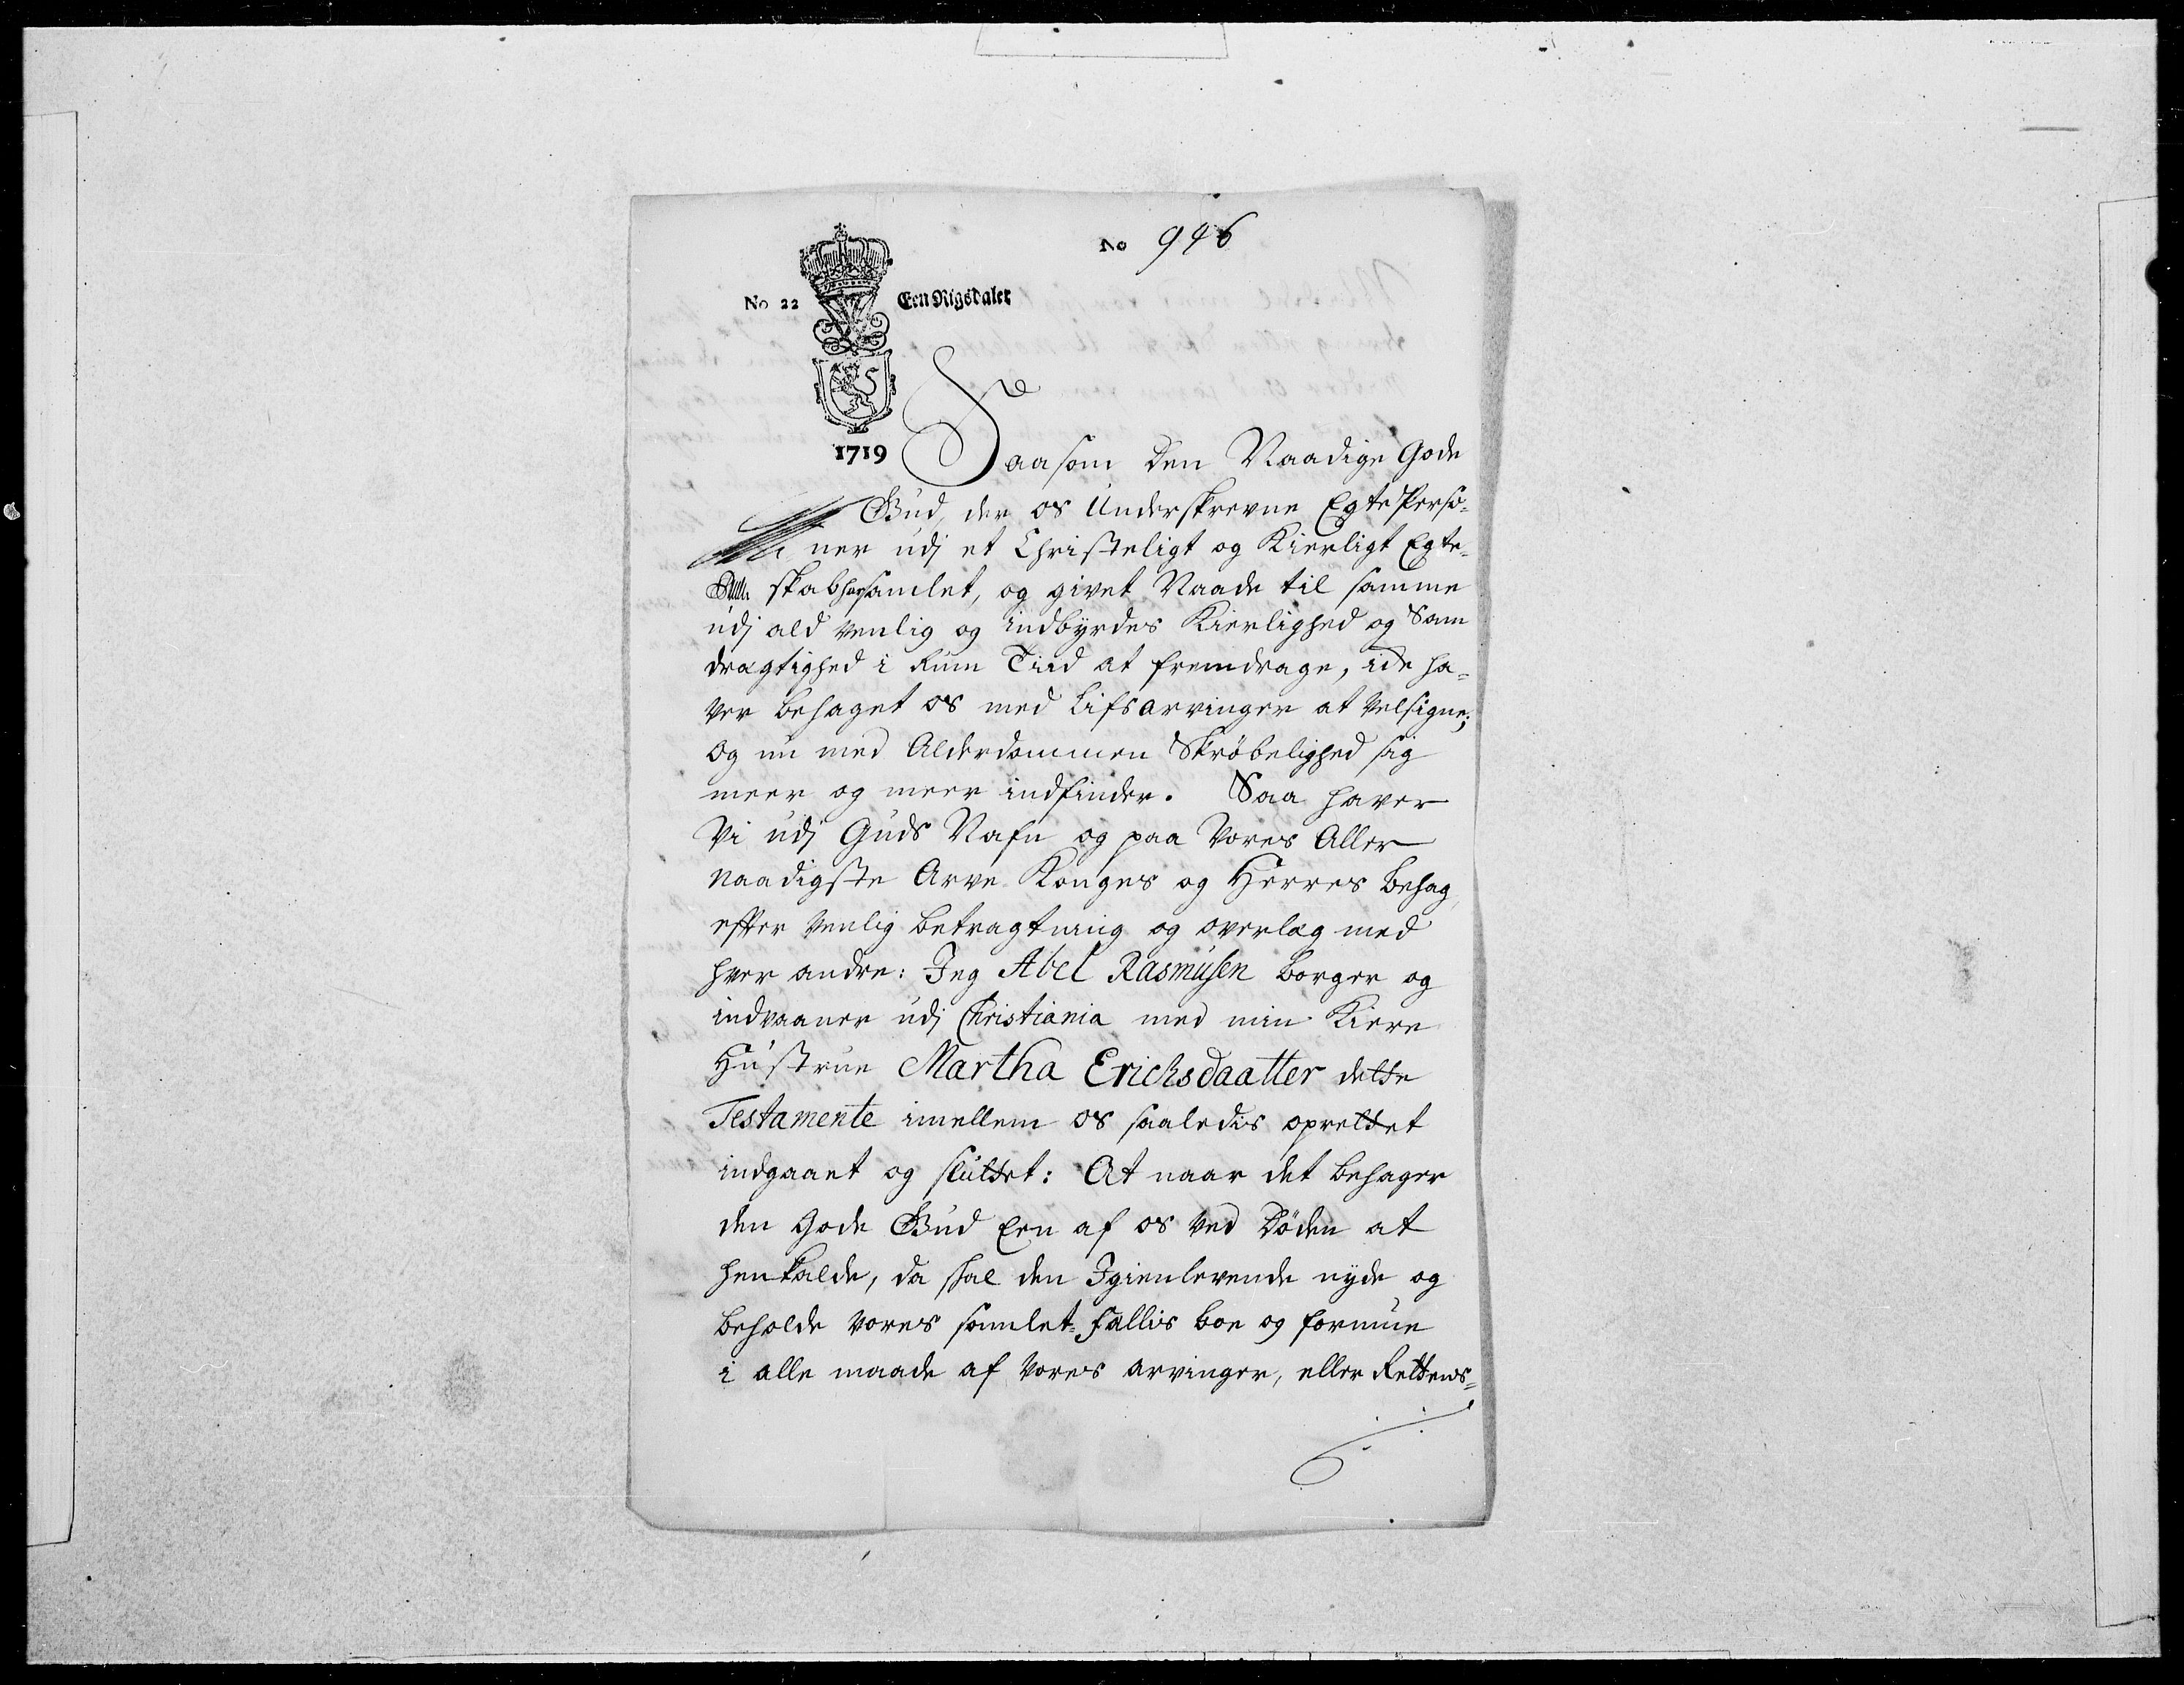 No 946
No 22 Een Rigsdaler
1719
Saasom den Naadige Gode
Gud, der os Underskrevne Egte Perso-
ner udj et Christeligt og Kierligt Egte-
skab har samlet, og givet Naade til samme
udj ald venlig og indbyrdes Kierlighed og Sam
drægtighed i Rum Tiid at fremdrage, icke ha-
ver behaget os med Lifsarvinger at velsigne;
Og nu med Alderdommen Skrøbelighed sig
meer og meer indfinder. Saa haver
Vi udj Guds Nafn og paa Vores Aller
naadigste Arve Konges og Herres behag,
efter venlig betragtning og overlæg med
hver andre: Jeg Abel Rasmusen borger og
indvaaner udj Christiania med min Kiere
Hustrue Martha Erichsdaatter dette
Testamente imellem os saaledis oprettet
indgaaet og sluttet: At naar det behager
den Gode Gud Een af os ved Døden at
henkalde, da skal den Igienlevende nyde og
beholde vores samlet-fællis boe og formue
i alle maade af vores arvinger, eller Rettens-